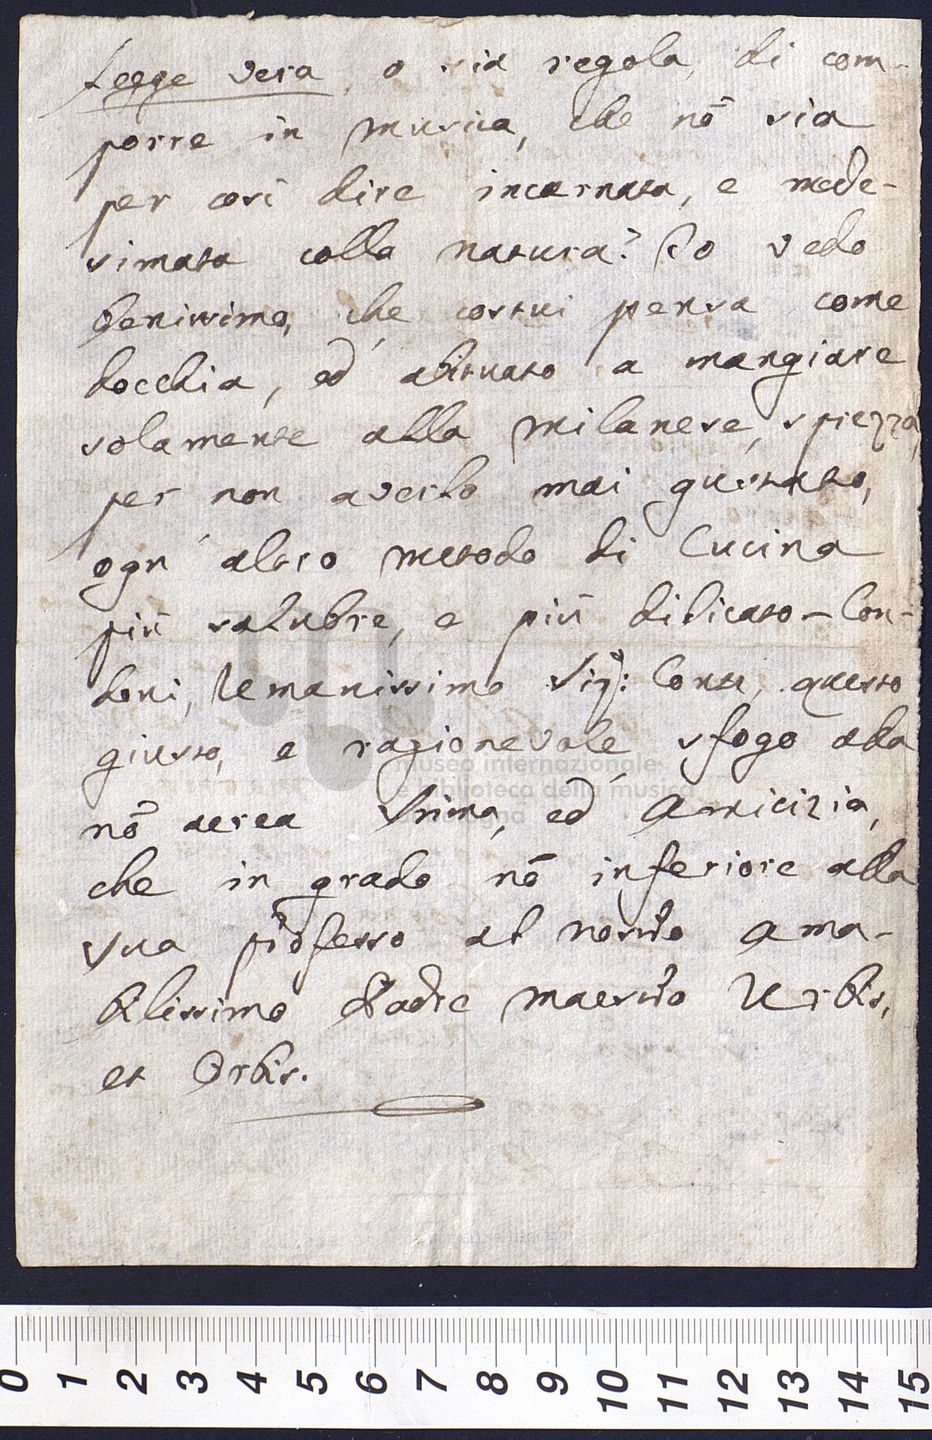 Legge vera, o sia regola, di com-
porre in musica, che nō sia
per così dire incarnata, e mede-
simata colla natura? Io vedo
benissimo, che costui pensa come
docchia, ed abituato a mangiare
solamente alla milanese, sprezza,
per non averlo mai gustato,
ogn' altro metodo di Cucina
più salubre, e più dilicato – Con-
doni, Umanissimo Sig.r Conte, questo
giusto, e ragionevole sfogo alla
nō aerea Stima, ed Amicizia,
che in grado nō inferiore alla
sua professo al nostro Ama-
bilissimo Padre maestro Urbis,
et Orbis.
museo internazionale
e biblioteca della musica
0 1 2 3 4 5 6 7 8 9 10 11 12 13 14 15